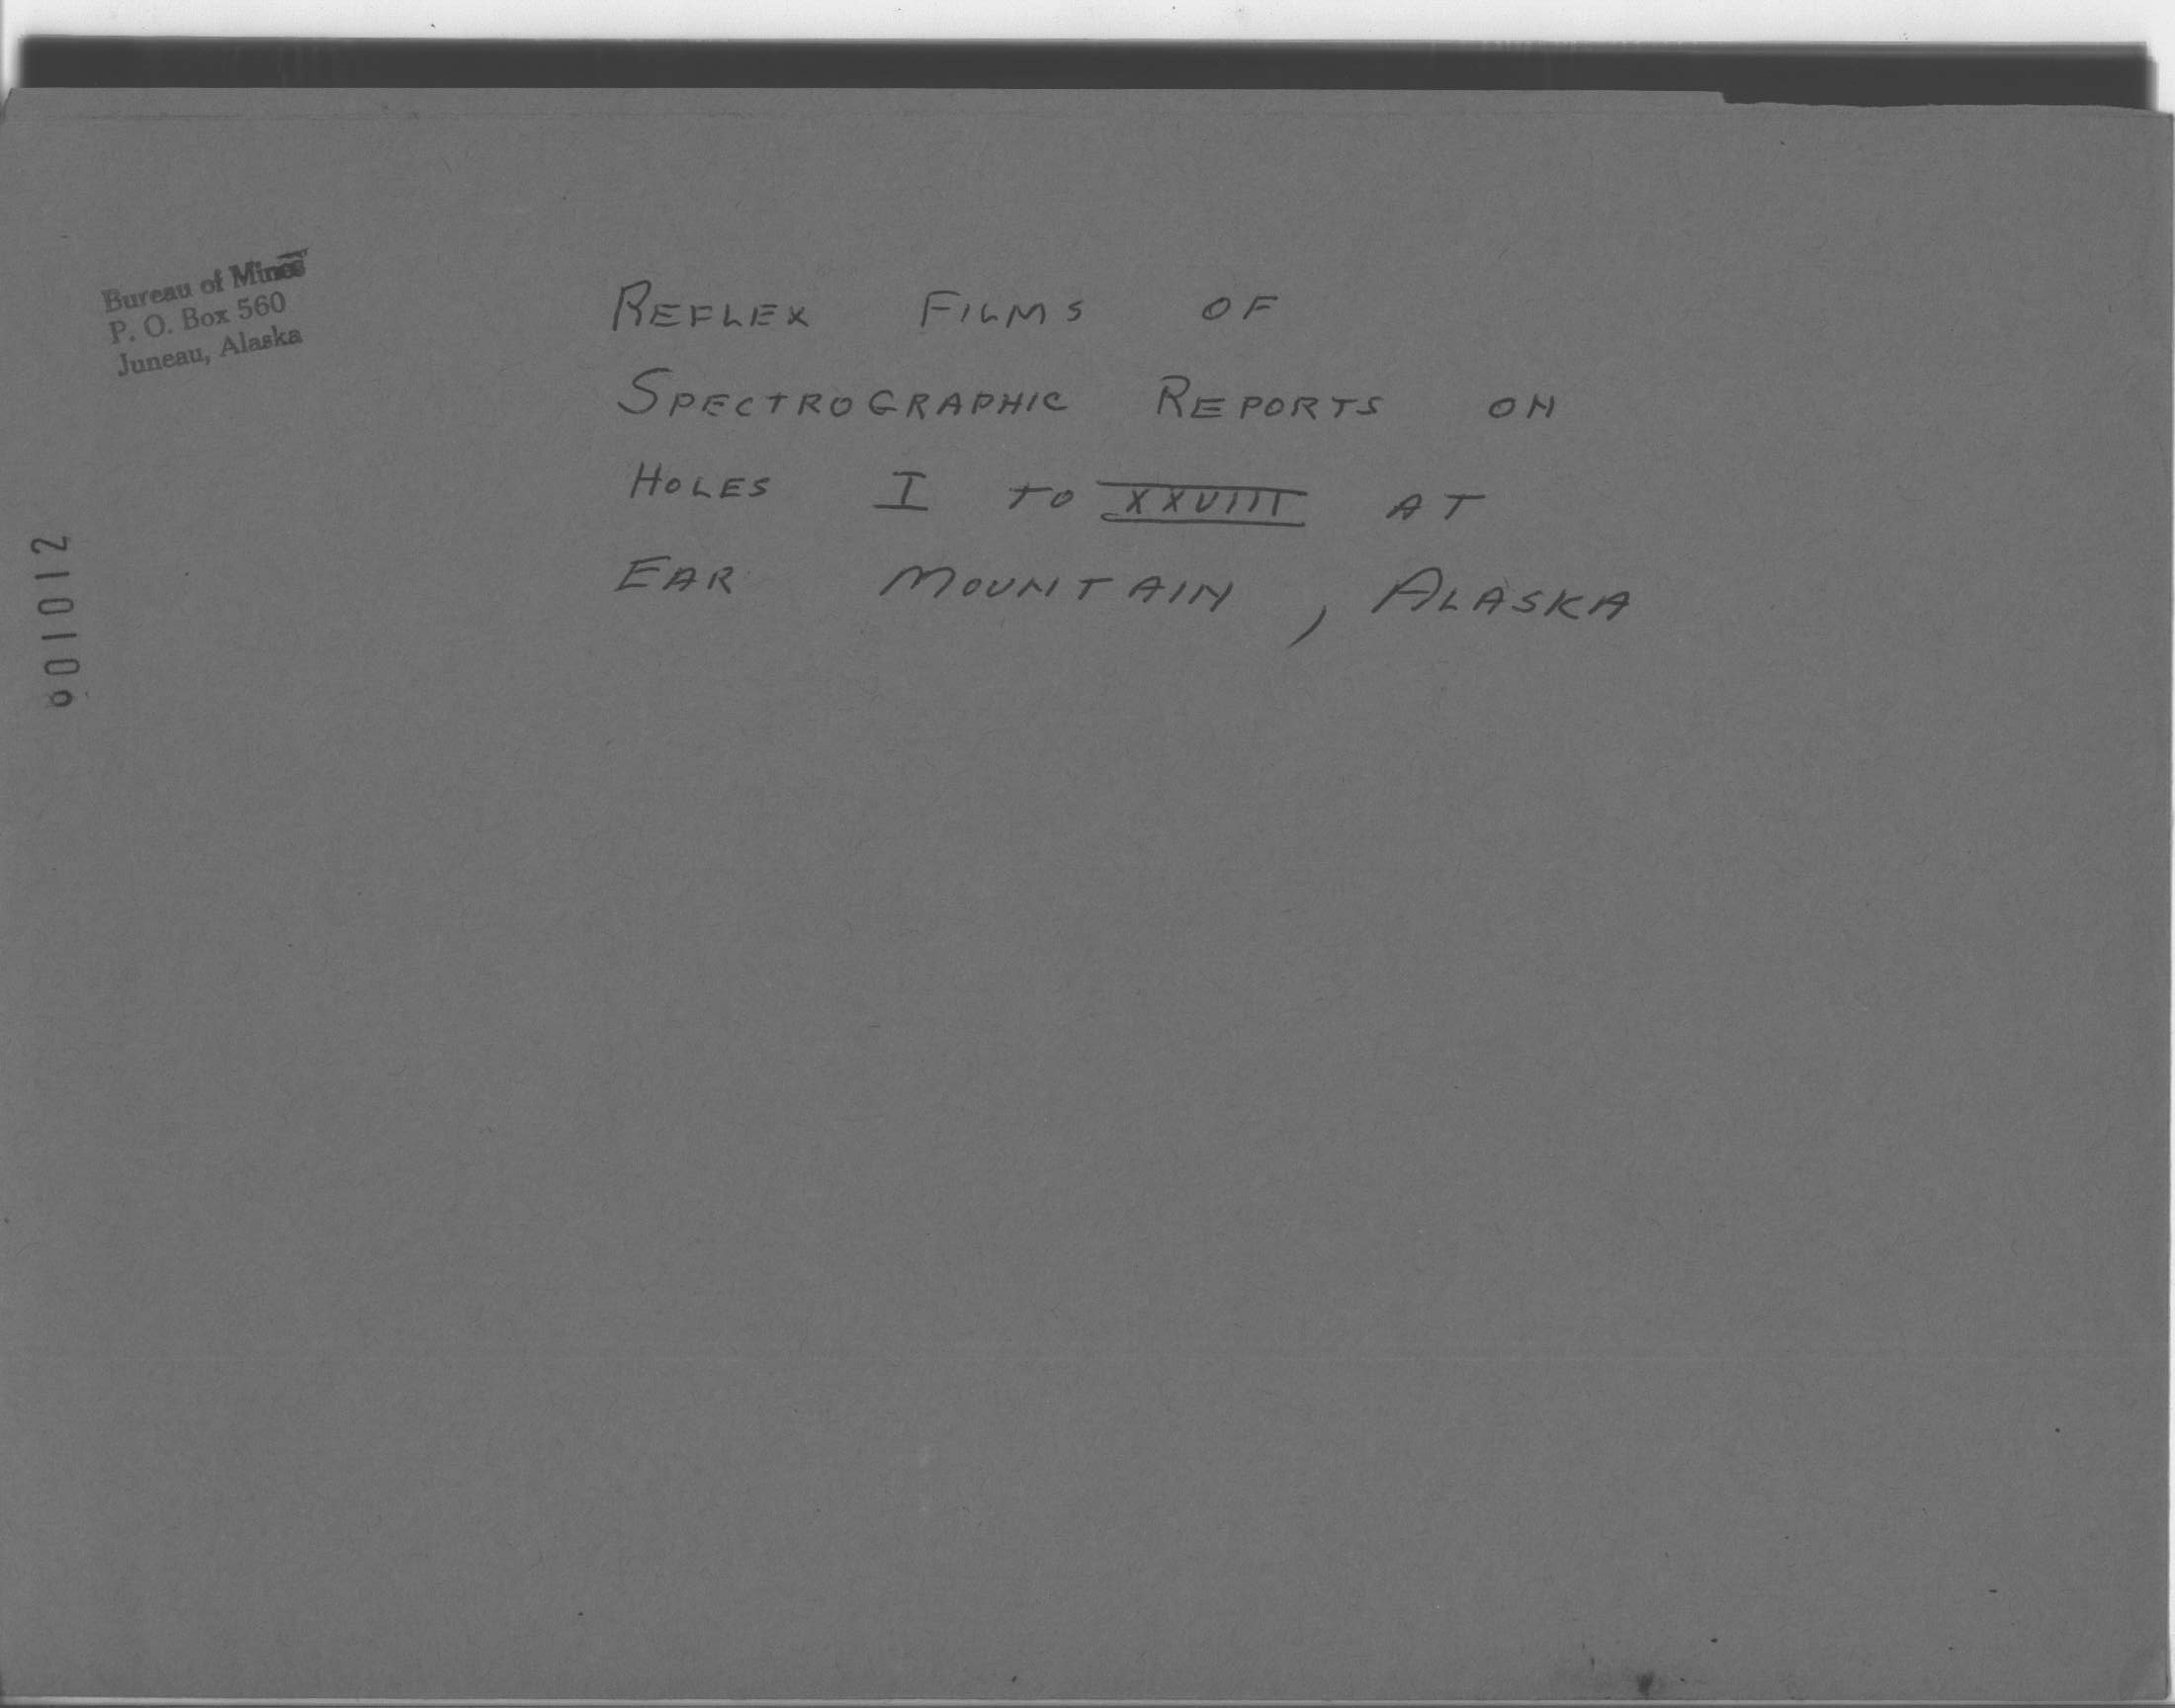 Bureau of Mines
P. O. Box 560
Juneau, Alaska
REFLEX FILMS OF
SPECTROGRAPHIC REPORTS ON
HOLES I TO XXVIII AT
EAR MOUNTAIN, ALASKA
001012